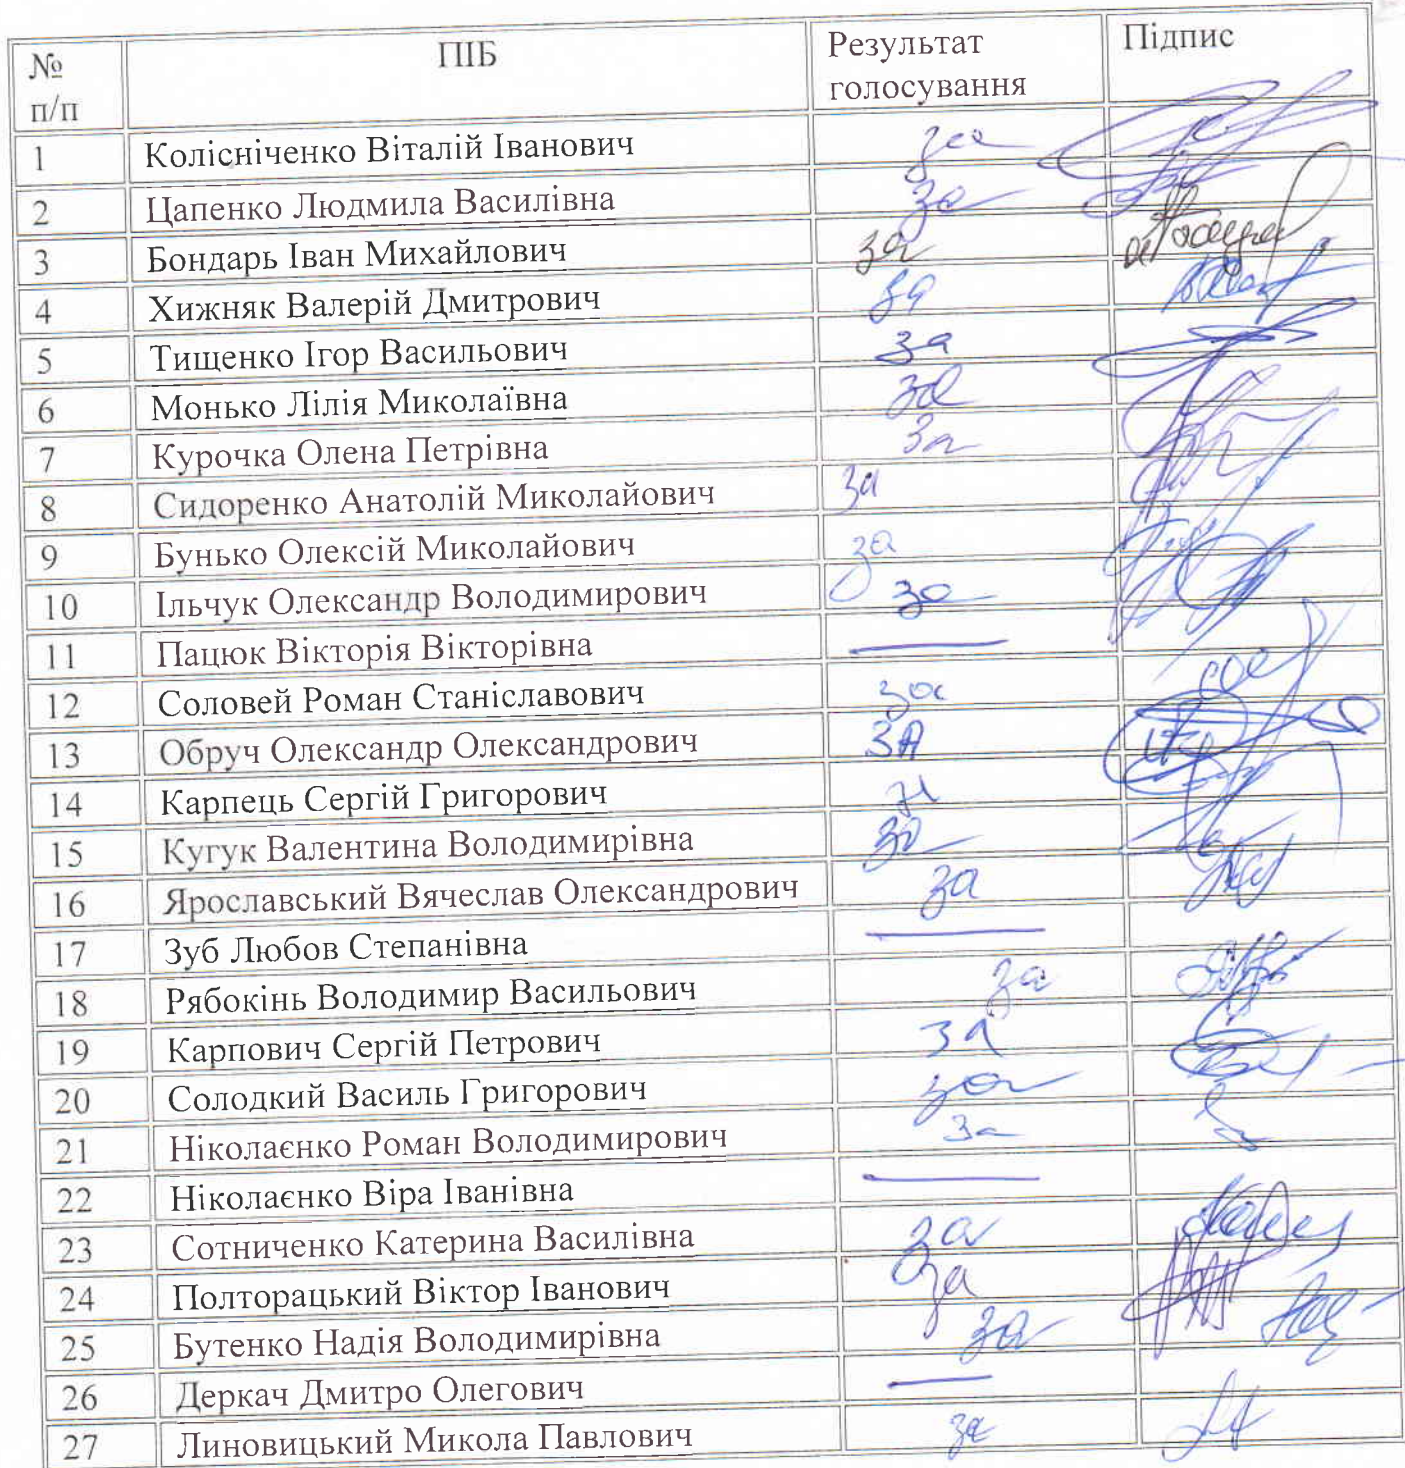 № п/п ПІБ Результат голосування Підпис
1 Колісніченко Віталій Іванович за
2 Цапенко Людмила Василівна за
3 Бондарь Іван Михайлович за
4 Хижняк Валерій Дмитрович за
5 Тищенко Ігор Васильович за
6 Монько Лілія Миколаївна за
7 Курочка Олена Петрівна за
8 Сидоренко Анатолій Миколайович за
9 Бунько Олексій Миколайович за
10 Ільчук Олександр Володимирович за
11 Пацюк Вікторія Вікторівна —
12 Соловей Роман Станіславович за
13 Обруч Олександр Олександрович ЗА
14 Карпець Сергій Григорович
15 Кугук Валентина Володимирівна за
16 Ярославський Вячеслав Олександрович за
17 Зуб Любов Степанівна —
18 Рябокінь Володимир Васильович за
19 Карпович Сергій Петрович за
20 Солодкий Василь Григорович за
21 Ніколаєнко Роман Володимирович за
22 Ніколаєнко Віра Іванівна —
23 Сотниченко Катерина Василівна за
24 Полторацький Віктор Іванович за
25 Бутенко Надія Володимирівна за
26 Деркач Дмитро Олегович —
27 Линовицький Микола Павлович за